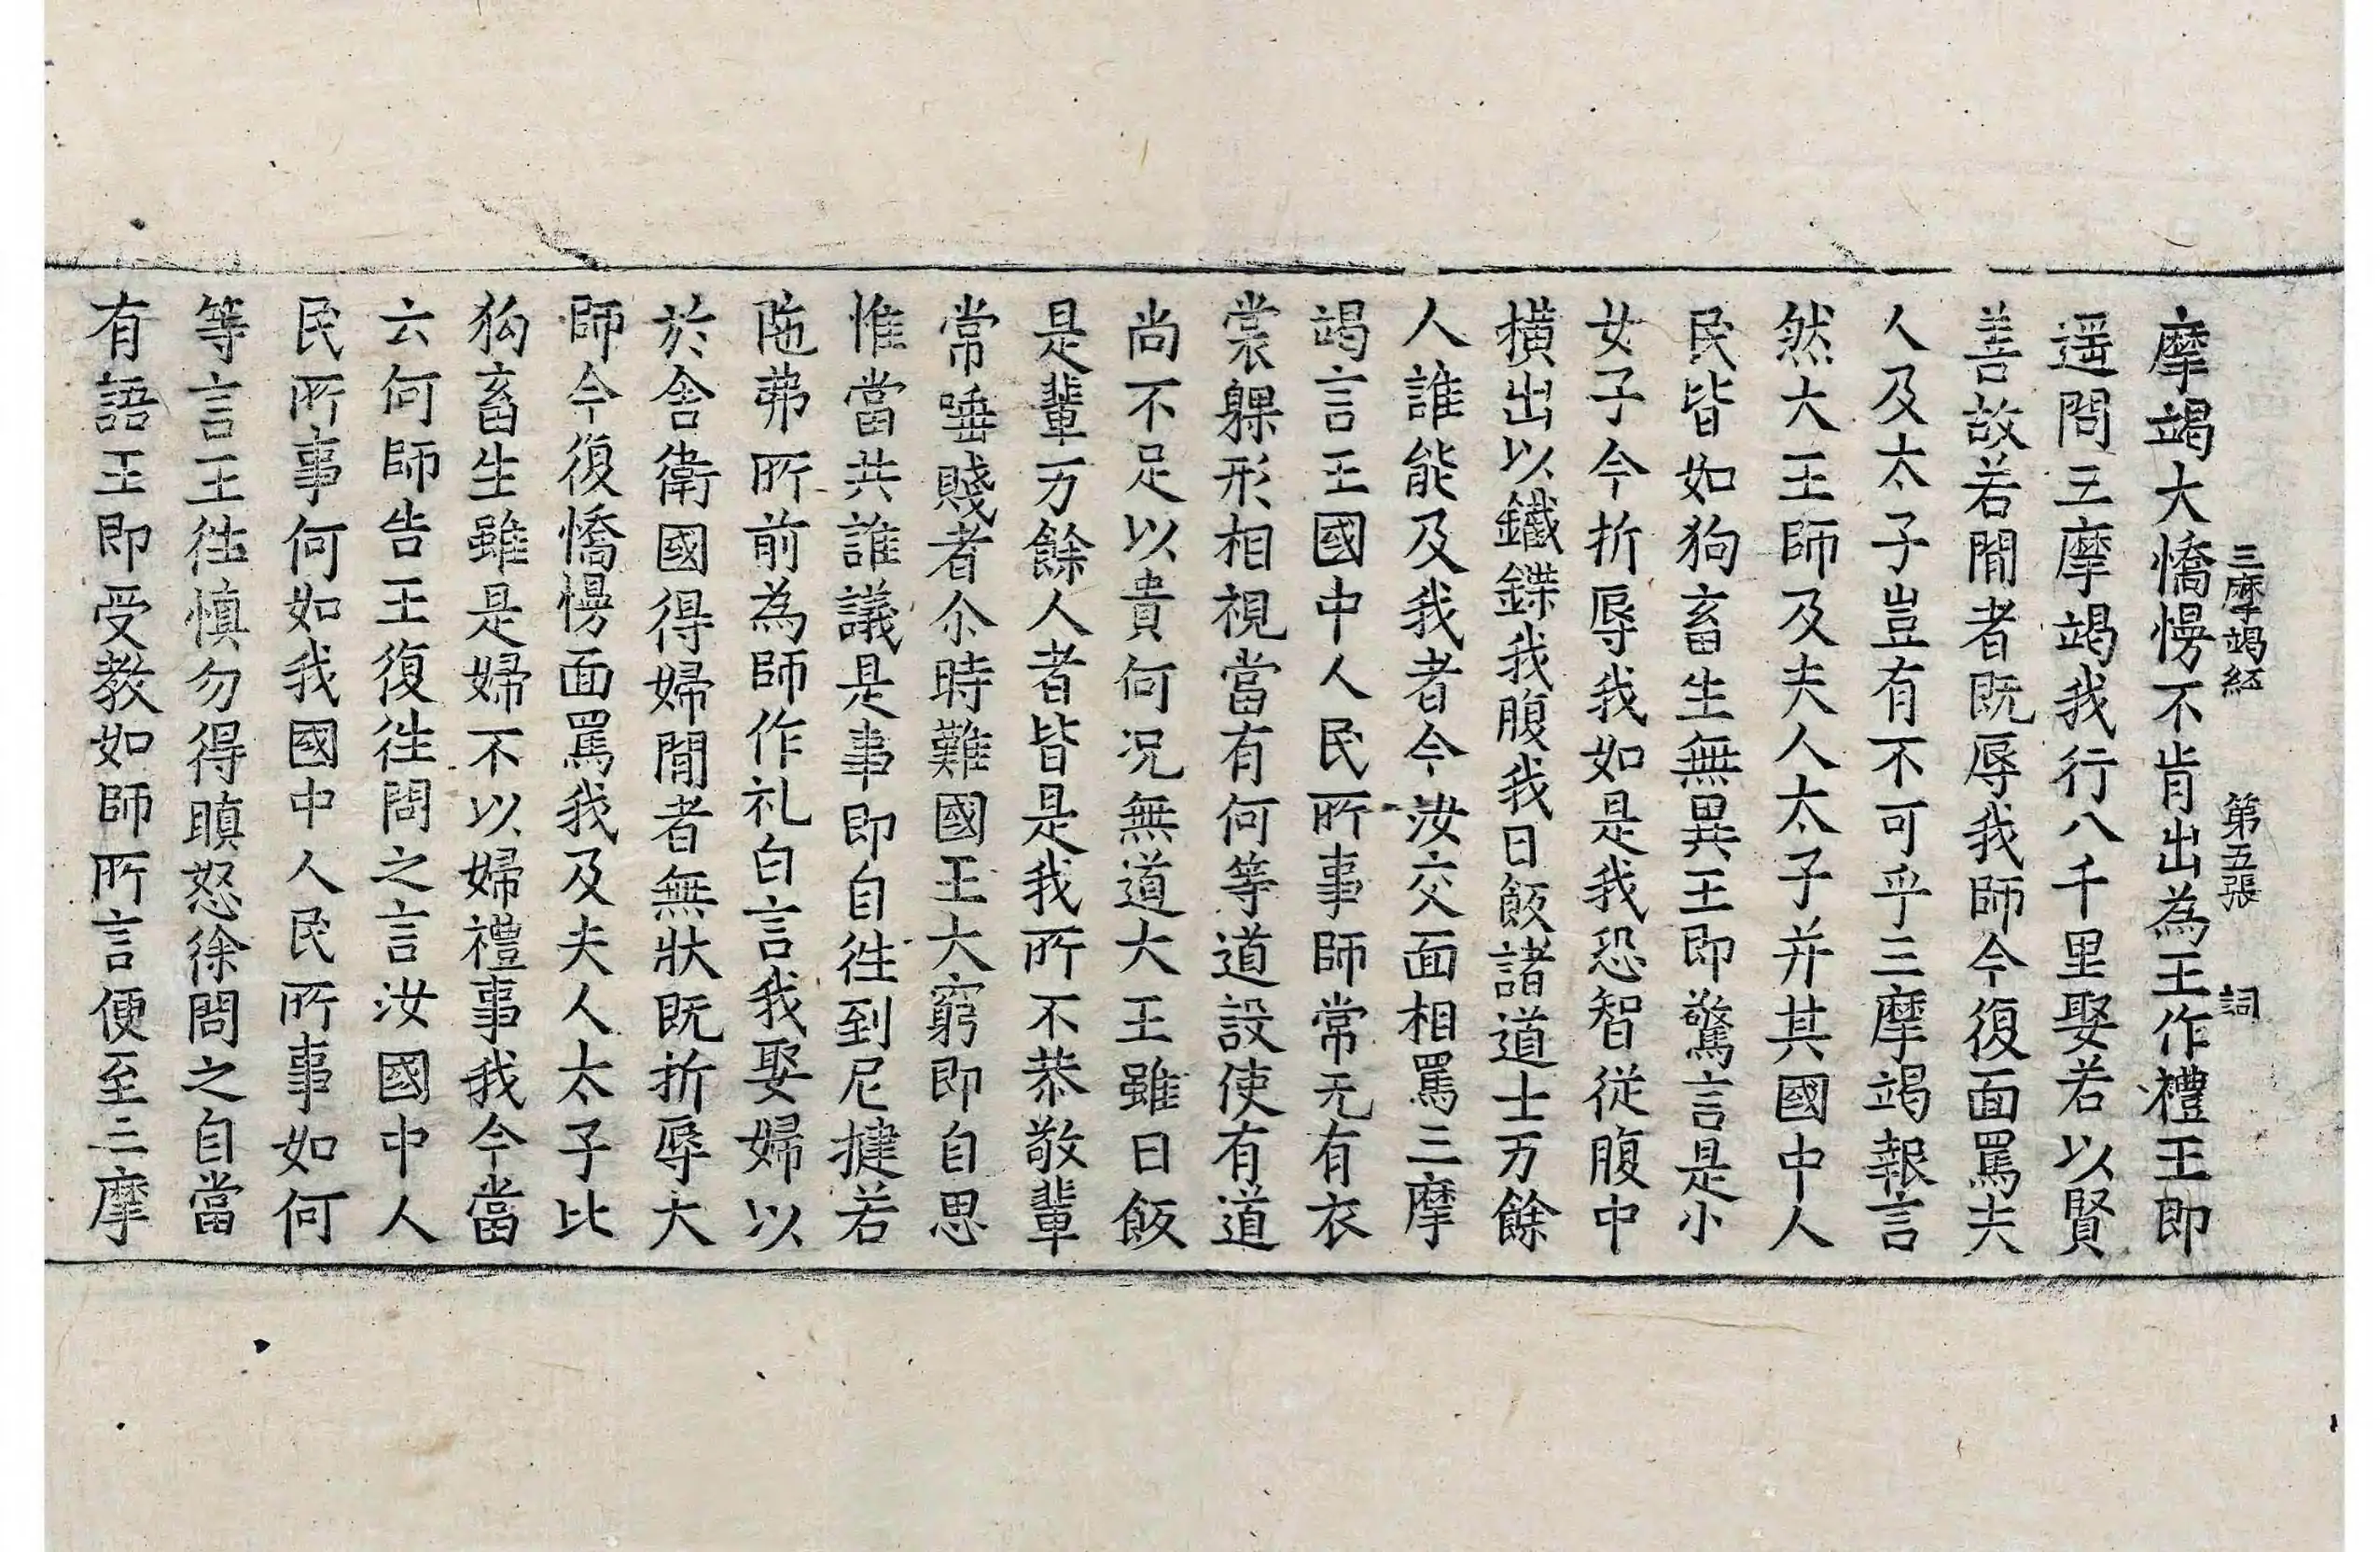 三摩竭経 第五張 詞
摩竭大憍慢不肯出為王作禮王即
遥問三摩竭我行八千里娶若以賢
善故若閒者既辱我師今復面罵夫
人及太子豈有不可乎三摩竭報言
然大王師及夫人太子并其國中人
民皆如狗畜生無異王即驚言是小
女子今折辱我如是我恐智従腹中
橫出以鐵鍱我腹我日飯諸道士万餘
人誰能及我者今汝交面相罵三摩
竭言王國中人民所事師常无有衣
裳躶形相視當有何等道設使有道
尚不足以貴何况無道大王雖日飯
是輩万餘人者皆是我所不恭敬輩
常唾賤者尒時難國王大窮即自思
惟當共誰議是事即自徃到尼揵若
陁弗所前為師作礼白言我娶婦以
於舎衛國得婦閒者無狀既折辱大
師今復憍慢面罵我及夫人太子比
狗畜生雖是婦不以婦禮事我今當
云何師告王復徃問之言汝國中人
民所事何如我國中人民所事如何
等言王徃慎勿得瞋怒徐問之自當
有語王即受教如師所言便至三摩